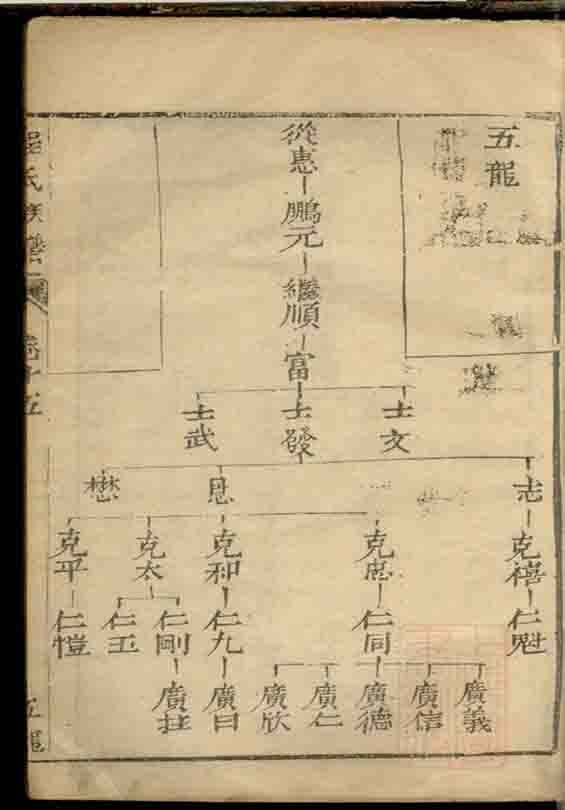 五龍
從惠 鵬元 繼順 富
士文 士發 士武
志 恩 懋
克禧 克忠 克和 克太 克平
仁魁 仁同 仁九 仁剛 仁玉 仁愷
廣義 廣信 廣德 廣仁 廣欣 廣曰 廣拄
氏族譜
卷十五
五龍